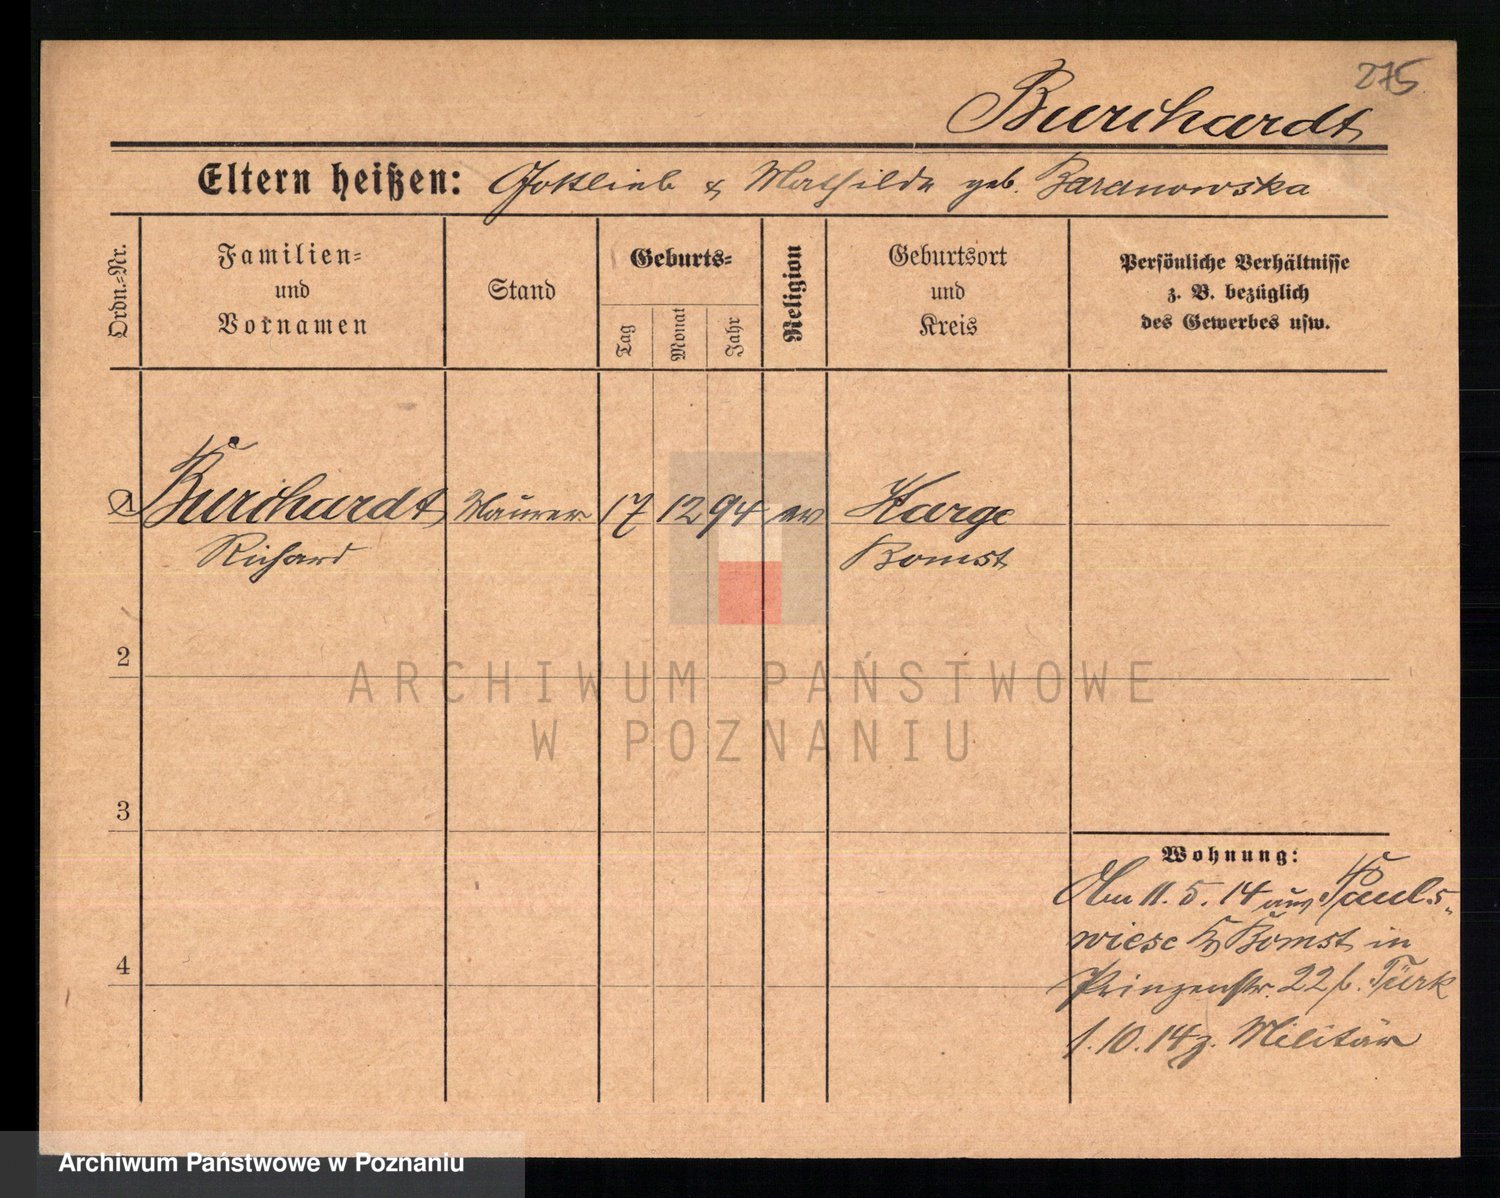 275
Burchardt
Eltern heißen: Gottlieb & Mathilde geb. Baranowska
Ordn.-Nr.
Familien-
und
Vornamen
Stand
Geburts-
Tag
Monat
Jahr
Religion
Geburtsort
und
Kreis
Persönliche Verhältnisse
z. B. bezüglich
des Gewerbes usw.
1 Burchardt Maurer 17 12 94 ev Karge
Richard Bomst
2
3
4
Wohnung:
Am 11. 5. 14 aus Pauls-
wiese Kr Bomst in
Prinzenstr. 22 b. Türk
1. 10. 14 z. Militär
ARCHIWUM PAŃSTWOWE
W POZNANIU
Archiwum Państwowe w Poznaniu